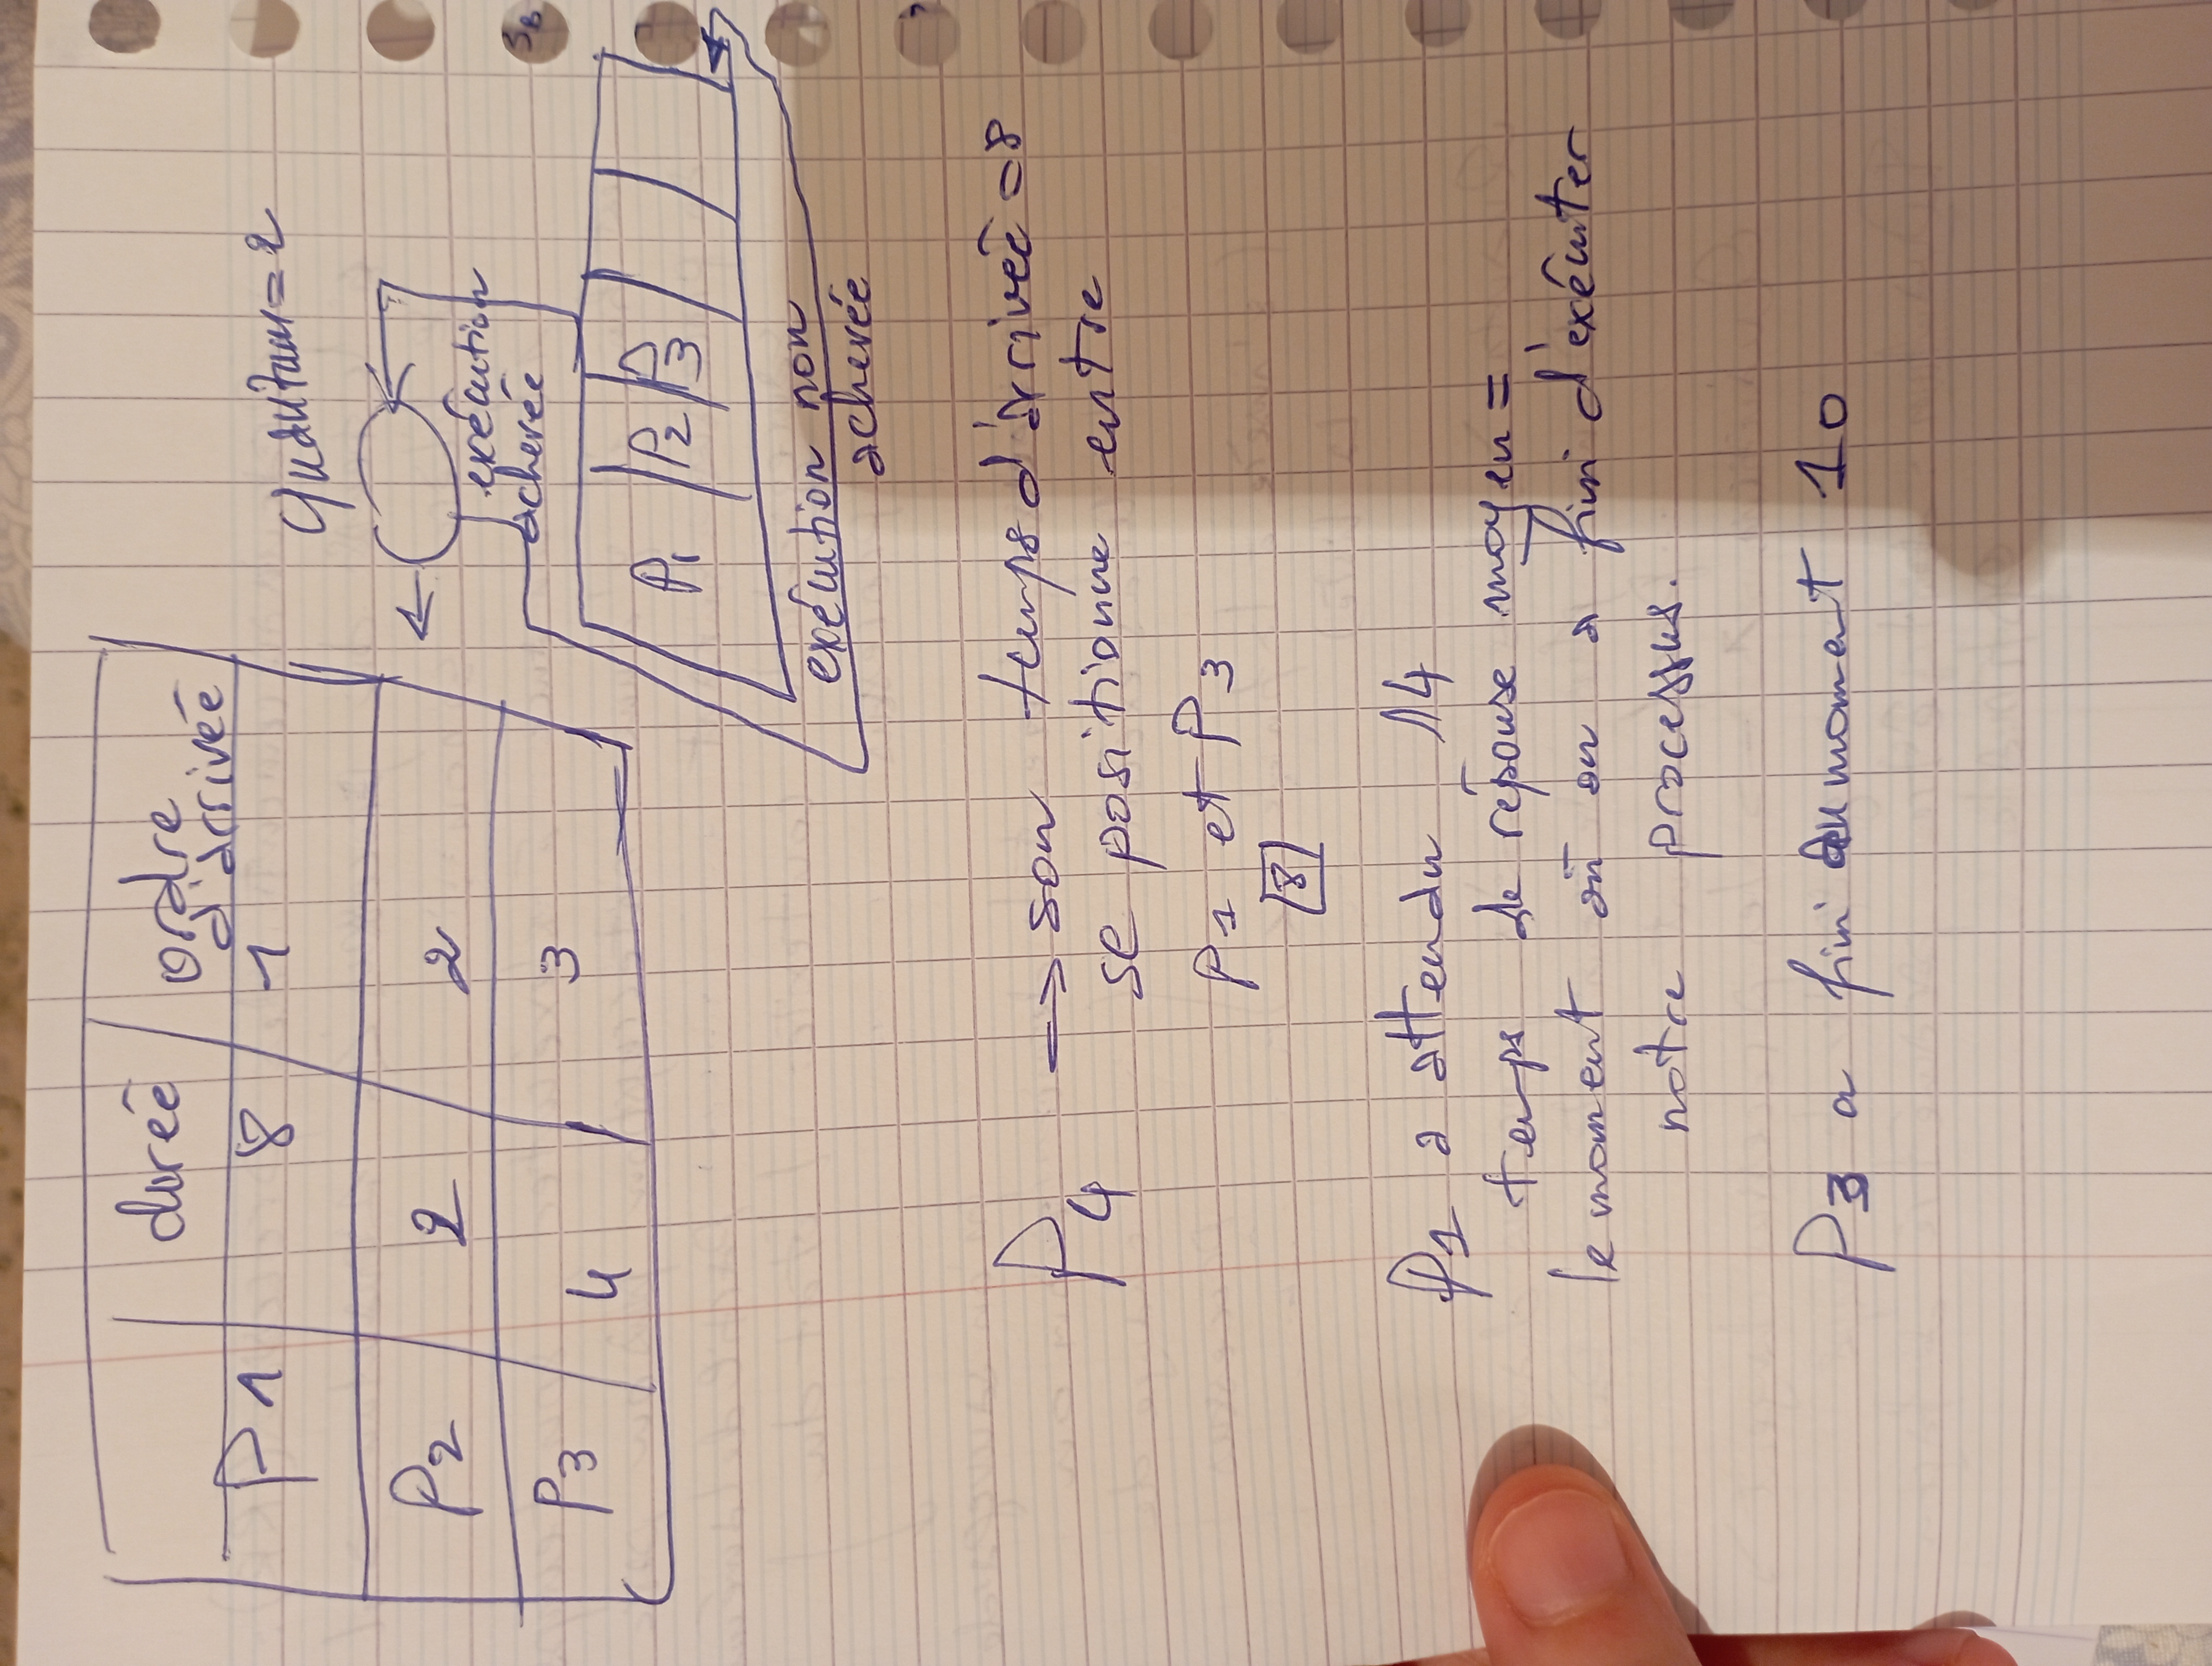 durée ordre
d'arrivée
P1 8 1
P2 2 2
P3 4 3
Quantum=2
exécution
achevée
P1 P2 P3
exécution non
achevée
P4 → son temps d'arrivée =8
se positionne entre
P1 et P3
8
P1 a attendu 14
temps de réponse moyen =
le moment où on a fini d'exécuter
notre processus.
P3 a fini au moment 10